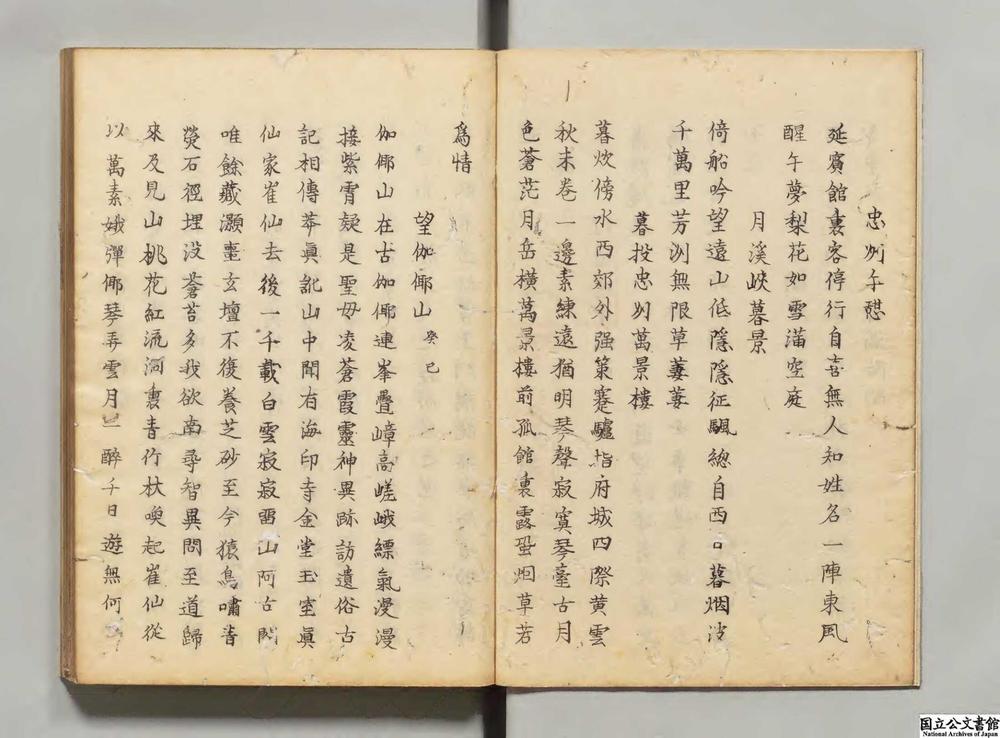 忠州午憇
延賓館裏客停行自喜無人知姓名一陣東風
醒午夢梨花如雪滿空庭
月溪峽暮景
倚船吟望遠山低隱隱征颿總自西口暮烟波
千萬里芳洲無限草萋萋
暮投忠州萬景樓
暮炊傍水西郊外强策蹇驢指府城四際黄雲
秋未卷一邊素練遠猶明琴聲寂寞琴臺古月
色蒼茫月岳橫萬景樓前孤館裏露蛩烟草若
爲情
望伽倻山 癸巳
伽倻山在古伽倻連峯疊嶂高嵯峨縹氣漫漫
接紫霄疑是聖母凌蒼霞靈神異跡訪遺俗古
記相傳莽眞訛山中聞有海印寺金堂玉室眞
仙家崔仙去後一千載白雲寂寂畱山阿古閟
唯餘藏灝噩玄壇不復養芝砂至今猿鳥嘯昔
熒石徑埋没蒼苔多我欲南尋智異問至道歸
來及見山桃花紅流洞裏青竹杖喚起崔仙從
以萬素娥彈倻琴弄雲月一醉千日遊無何
国立公文書館
National Archives of Japan